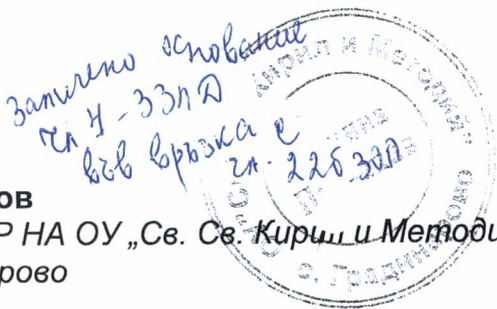 Заличено основание
чл 4 - ЗЗЛД
във връзка с
чл. 22б ЗОП
ов
Р НА ОУ „Св. Св. Кирил и Методи
рово
Кирил и Методий"
с. Градинарово